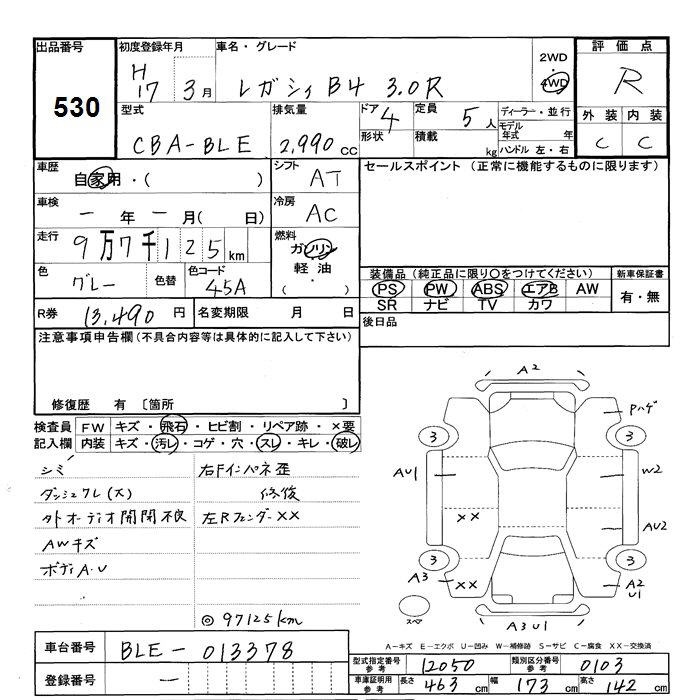 出品番号 初度登録年月 車名・グレード 2WD 評価点
530 H17 3月 レガシィB4 3.0R 4WD R
型式 排気量 ドア 4 定員 5人 ディーラー・並行 外装 内装
CBA-BLE 2,990cc 形状 積載 kg モデル年式 年 C C
ハンドル 左・右
車歴 自家用・( ) シフト AT セールスポイント (正常に機能するものに限ります)
車検 ー年ー月(日) 冷房 AC
走行 9万7千125km 燃料 ガソリン 軽油 ・( )
色 グレー 色替 色コード 45A
装備品 (純正品に限り○をつけてください) 新車保証書
PS PW ABS エアB AW 有・無
SR ナビ TV カワ
R券 13,490円 名変期限 月 日 後日品
注意事項申告欄 (不具合内容等は具体的に記入して下さい)
修復歴 有 〔箇所 〕
検査員 FW キズ・飛石・ヒビ割・リペア跡・×要
記入欄 内装 キズ・汚レ・コゲ・穴・スレ・キレ・破レ
シミ 右Fインパネ歪
ダッシュワレ(大) 修復
外オーディオ開閉不良 左Rフェンダー××
AWキズ
ボディA.U
◎97125km
A2
Pハゲ
3 3
AU1 W2
××
AU2
3 3
A3 ×× A2
U1
スペア
A3U1
A-キズ E-エクボ U-凹み W-補修跡 S-サビ C-腐食 XX-交換済
車台番号 BLE-013378
型式指定番号 参考 12050 類別区分番号 参考 0103
登録番号 ー
車庫証明用 参考 長さ 463cm 幅 173cm 高さ 142cm